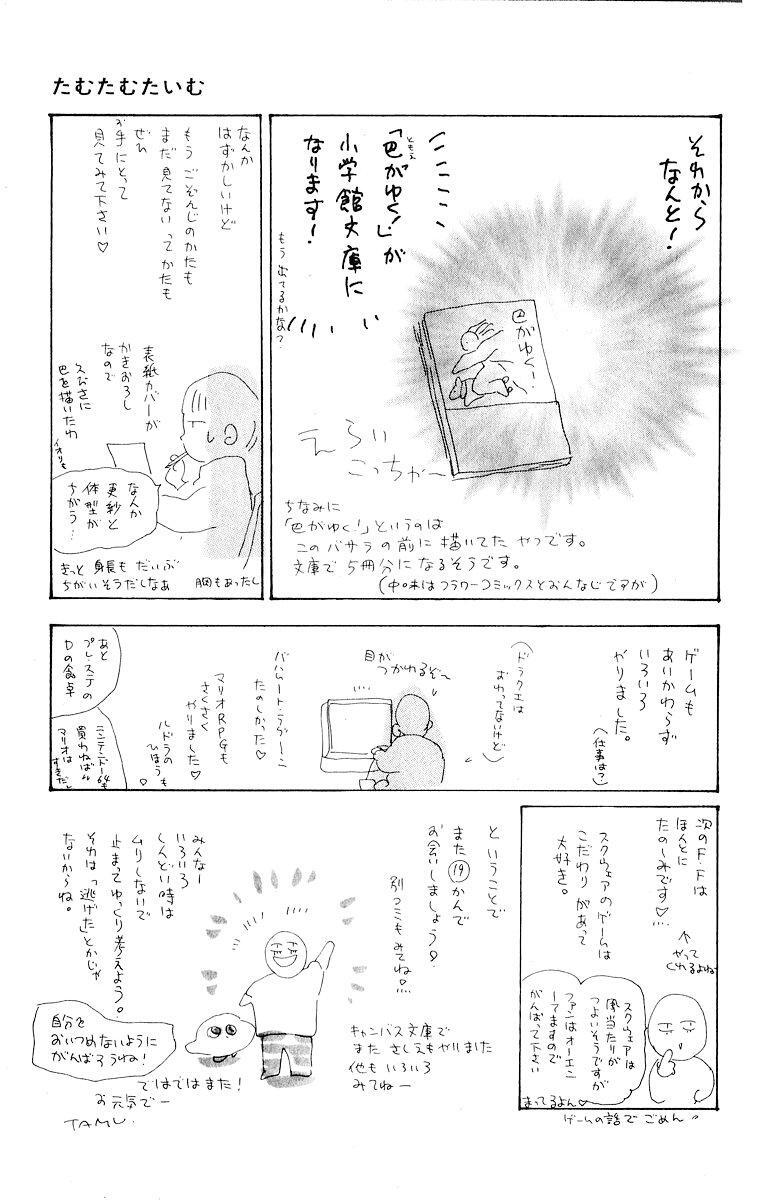 たむたむたいむ
それから
なんと!
ともえ
「巴がゆく!」が
小学館文庫に
なります!
もう出てるかな?
巴がゆく!
えらい
こっちゃ〜
ちなみに
「巴がゆく!」というのは
このバサラの前に描いてたやつです。
文庫で5冊分になるそうです。
(中味はフラワーコミックスとおんなじですが)
なんか
はずかしいけど
もうごぞんじのかたも
まだ見てないってかたも
ぜひ
お手にとって
見てみて下さい♡
表紙カバーが
かきおろし
なので
久びさに
巴を描いたわ
イオリも
なんか
更紗と
体型が
ちがう…
きっと身長もだいぶ
ちがいそうだしなあ
胸もあったし
ゲームも
あいかわらず
いろいろ
やりました。
(仕事は?)
(ドラクエは
おわってないけど)
目が
つかれるぞ〜
バハムート・ラグーン
たのしかった♡
マリオRPGも
さくさく
やりました♡
ルドラの
ひほうも
♡
あと
プレ・ステの
Dの食卓
ニンテンドー64も
買わねば〃
マリオは
すきだし
次のF・Fは
ほんとに
たのーみです♡…
↑
やって
くれるよね
スクウェアのゲームは
こだわりがあって
大好き。
スクウェアは
風当たりが
つよいそうですが
ファンはオーエン
してますので
がんばって下さい
まってるよん♡
ゲームの話でごめん〃
ということで
また⑲かんで
お会いしましょう♡
別コミもみてね♡…
キャンバス文庫で
またさしえもやりました
他もいろいろ
みてねー
みんなー
いろいろ
しんどい時は
ムリしないで
止まってゆっくり考えよう。
それは「逃げた」とかじゃ
ないからね。
自分を
おいつめないように
がんばろうね!
ではではまた!
お元気でー
TAMU.